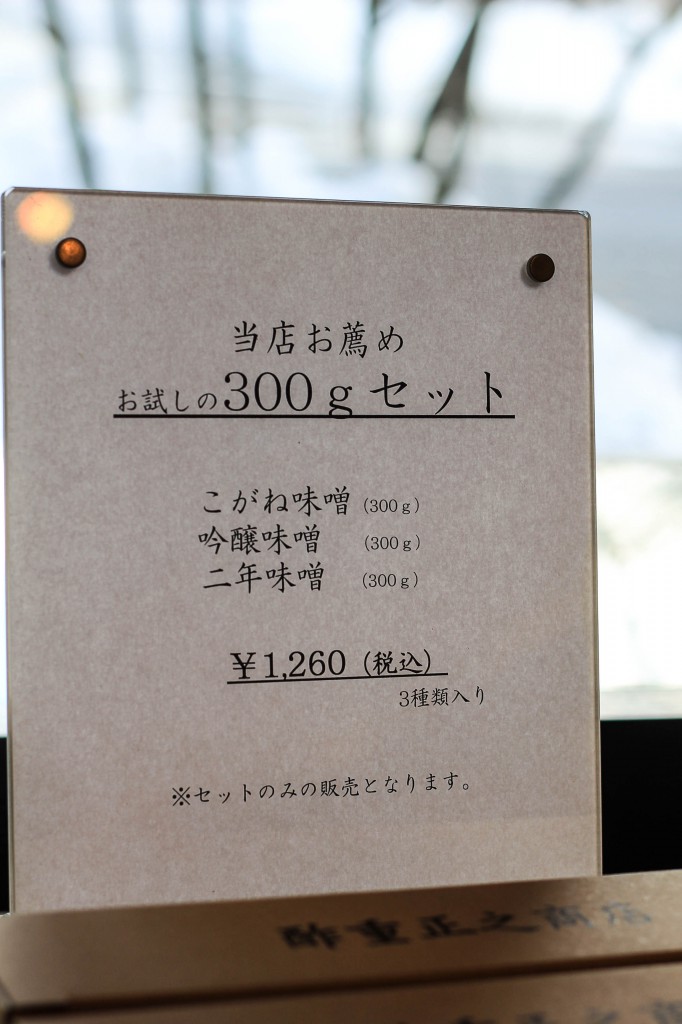 当店お薦め
お試しの300ｇセット
こがね味噌 (300ｇ)
吟醸味噌 (300ｇ)
二年味噌 (300ｇ)
￥1,260（税込）
3種類入り
※セットのみの販売となります。
酢重正之商店